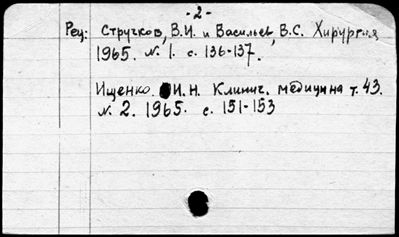 - 2 -
Рец: Стручков, В.И. и Васильев, В.С. Хирургия,
1965. N. 1. с. 136-137.
Ищенко. И.Н. Клинич. медицина т. 43.
N. 2. 1965. с. 151-153